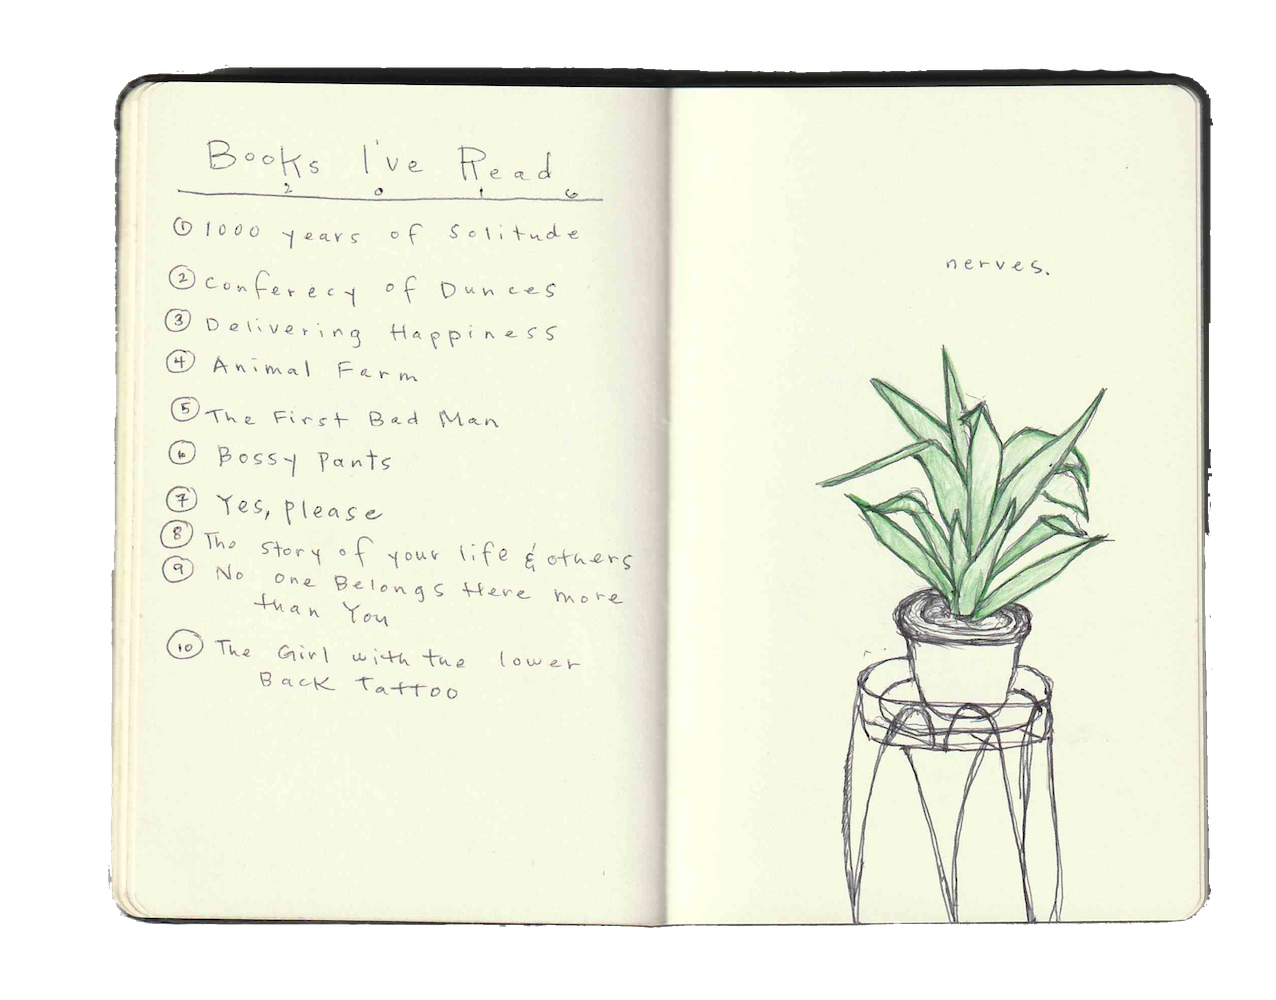 Books I've Read
2 0 1 6
① 1000 years of Solitude
② Conferecy of Dunces
③ Delivering Happiness
④ Animal Farm
⑤ The First Bad Man
⑥ Bossy Pants
⑦ Yes, please
⑧ The story of your life & others
⑨ No one Belongs Here more
than You
⑩ The Girl with the lower
Back Tattoo
nerves.